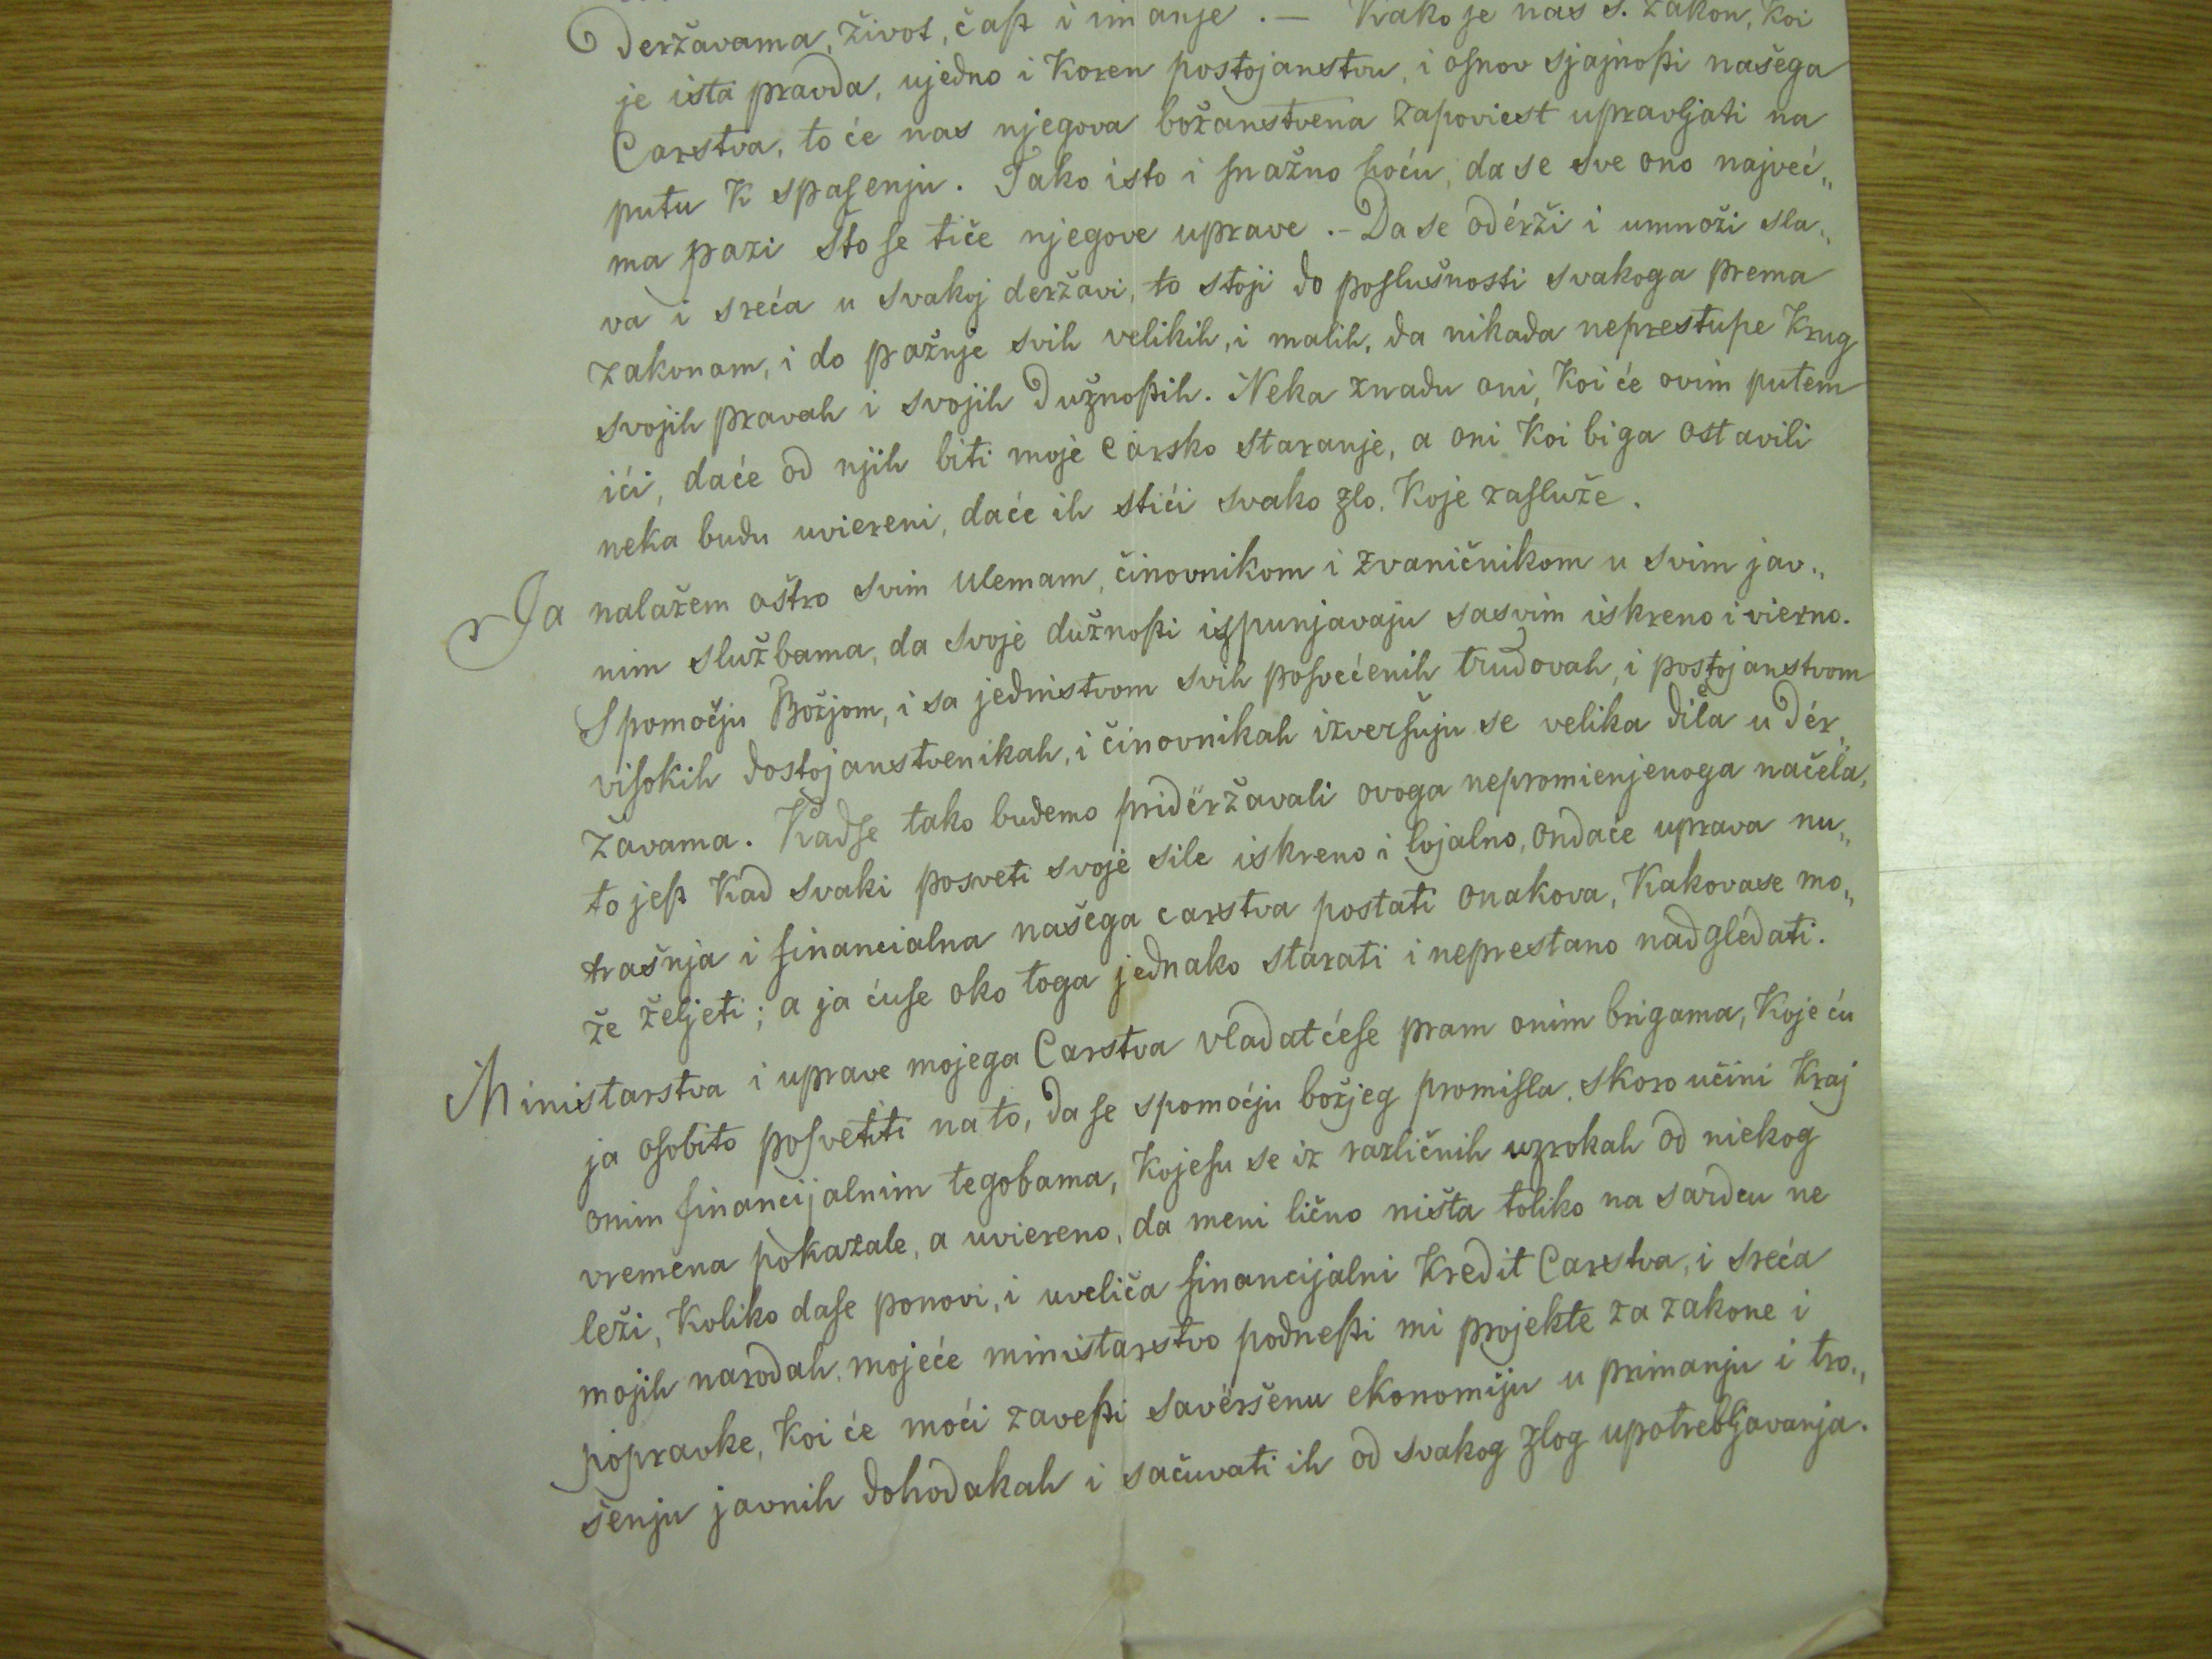 deržavama, život, čast i imanje. — Kako je nas s. zakon, koi
je ista pravda, ujedno i koren postojanstvu, i osnov sjajnosti našega
Carstva, to će nas njegova božanstvena zapoviest upravljati na
putu k spasenju. Tako isto i snažno hoću, da se sve ono največ„
ma pazi što se tiče njegove uprave. – Da se odérži i umnoži sla„
va i sreća u svakoj deržavi, to stoji do poslušnosti svakoga prema
zakonam, i do pažnje svih velikih, i malih, da nikada neprestupe krug
svojih pravah i svojih dužnostih. Neka znadu oni, koi će ovim putem
ići, daće od njih biti moje carsko staranje, a oni koi bi ga ostavili
neka budu uviereni, daće ih stići svako zlo, koje zasluže.
Ja nalažem oštro svim ulemam, činovnikom i zvaničnikom u svim jav„
nim službama, da svoje dužnosti izpunjavaju sasvim iskreno i vierno.
S pomoćju Božjom, i sa jedinstvom svih posvećenih trudovah, i postojanstvom
visokih dostojanstvenikah, i činovnikah izveršuju se velika dila u dér„
žavama. Kadse tako budemo pridëržavali ovoga nepromienjenoga načela,
to jest kad svaki posveti svoje sile iskreno i lojalno, ondaće uprava nu„
trašnja i financialna našega carstva postati onakova, kakovase mo„
že željeti; a ja ćuse oko toga jednako starati i neprestano nadgledati.
Ministarstva i uprave mojega Carstva vladatćese pram onim brigama, koje ću
ja osobito posvetiti na to, da se spomoćju božjeg promisla, skoro učini kraj
onim financijalnim tegobama, kojesu se iz različnih uzrokah od niekog
vremena pokazale, a uviereno, da meni lično ništa toliko na sardcu ne
leži, koliko dase ponovi, i uveliča financijalni kredit Carstva, i sreća
mojih narodah, mojeće ministarstvo podnesti mi projekte za zakone i
popravke, koi će moći zavesti savëršenu ekonomiju u primanju i tro„
šenju javnih dohodakah i sačuvati ih od svakog zlog upotrebljavanja.